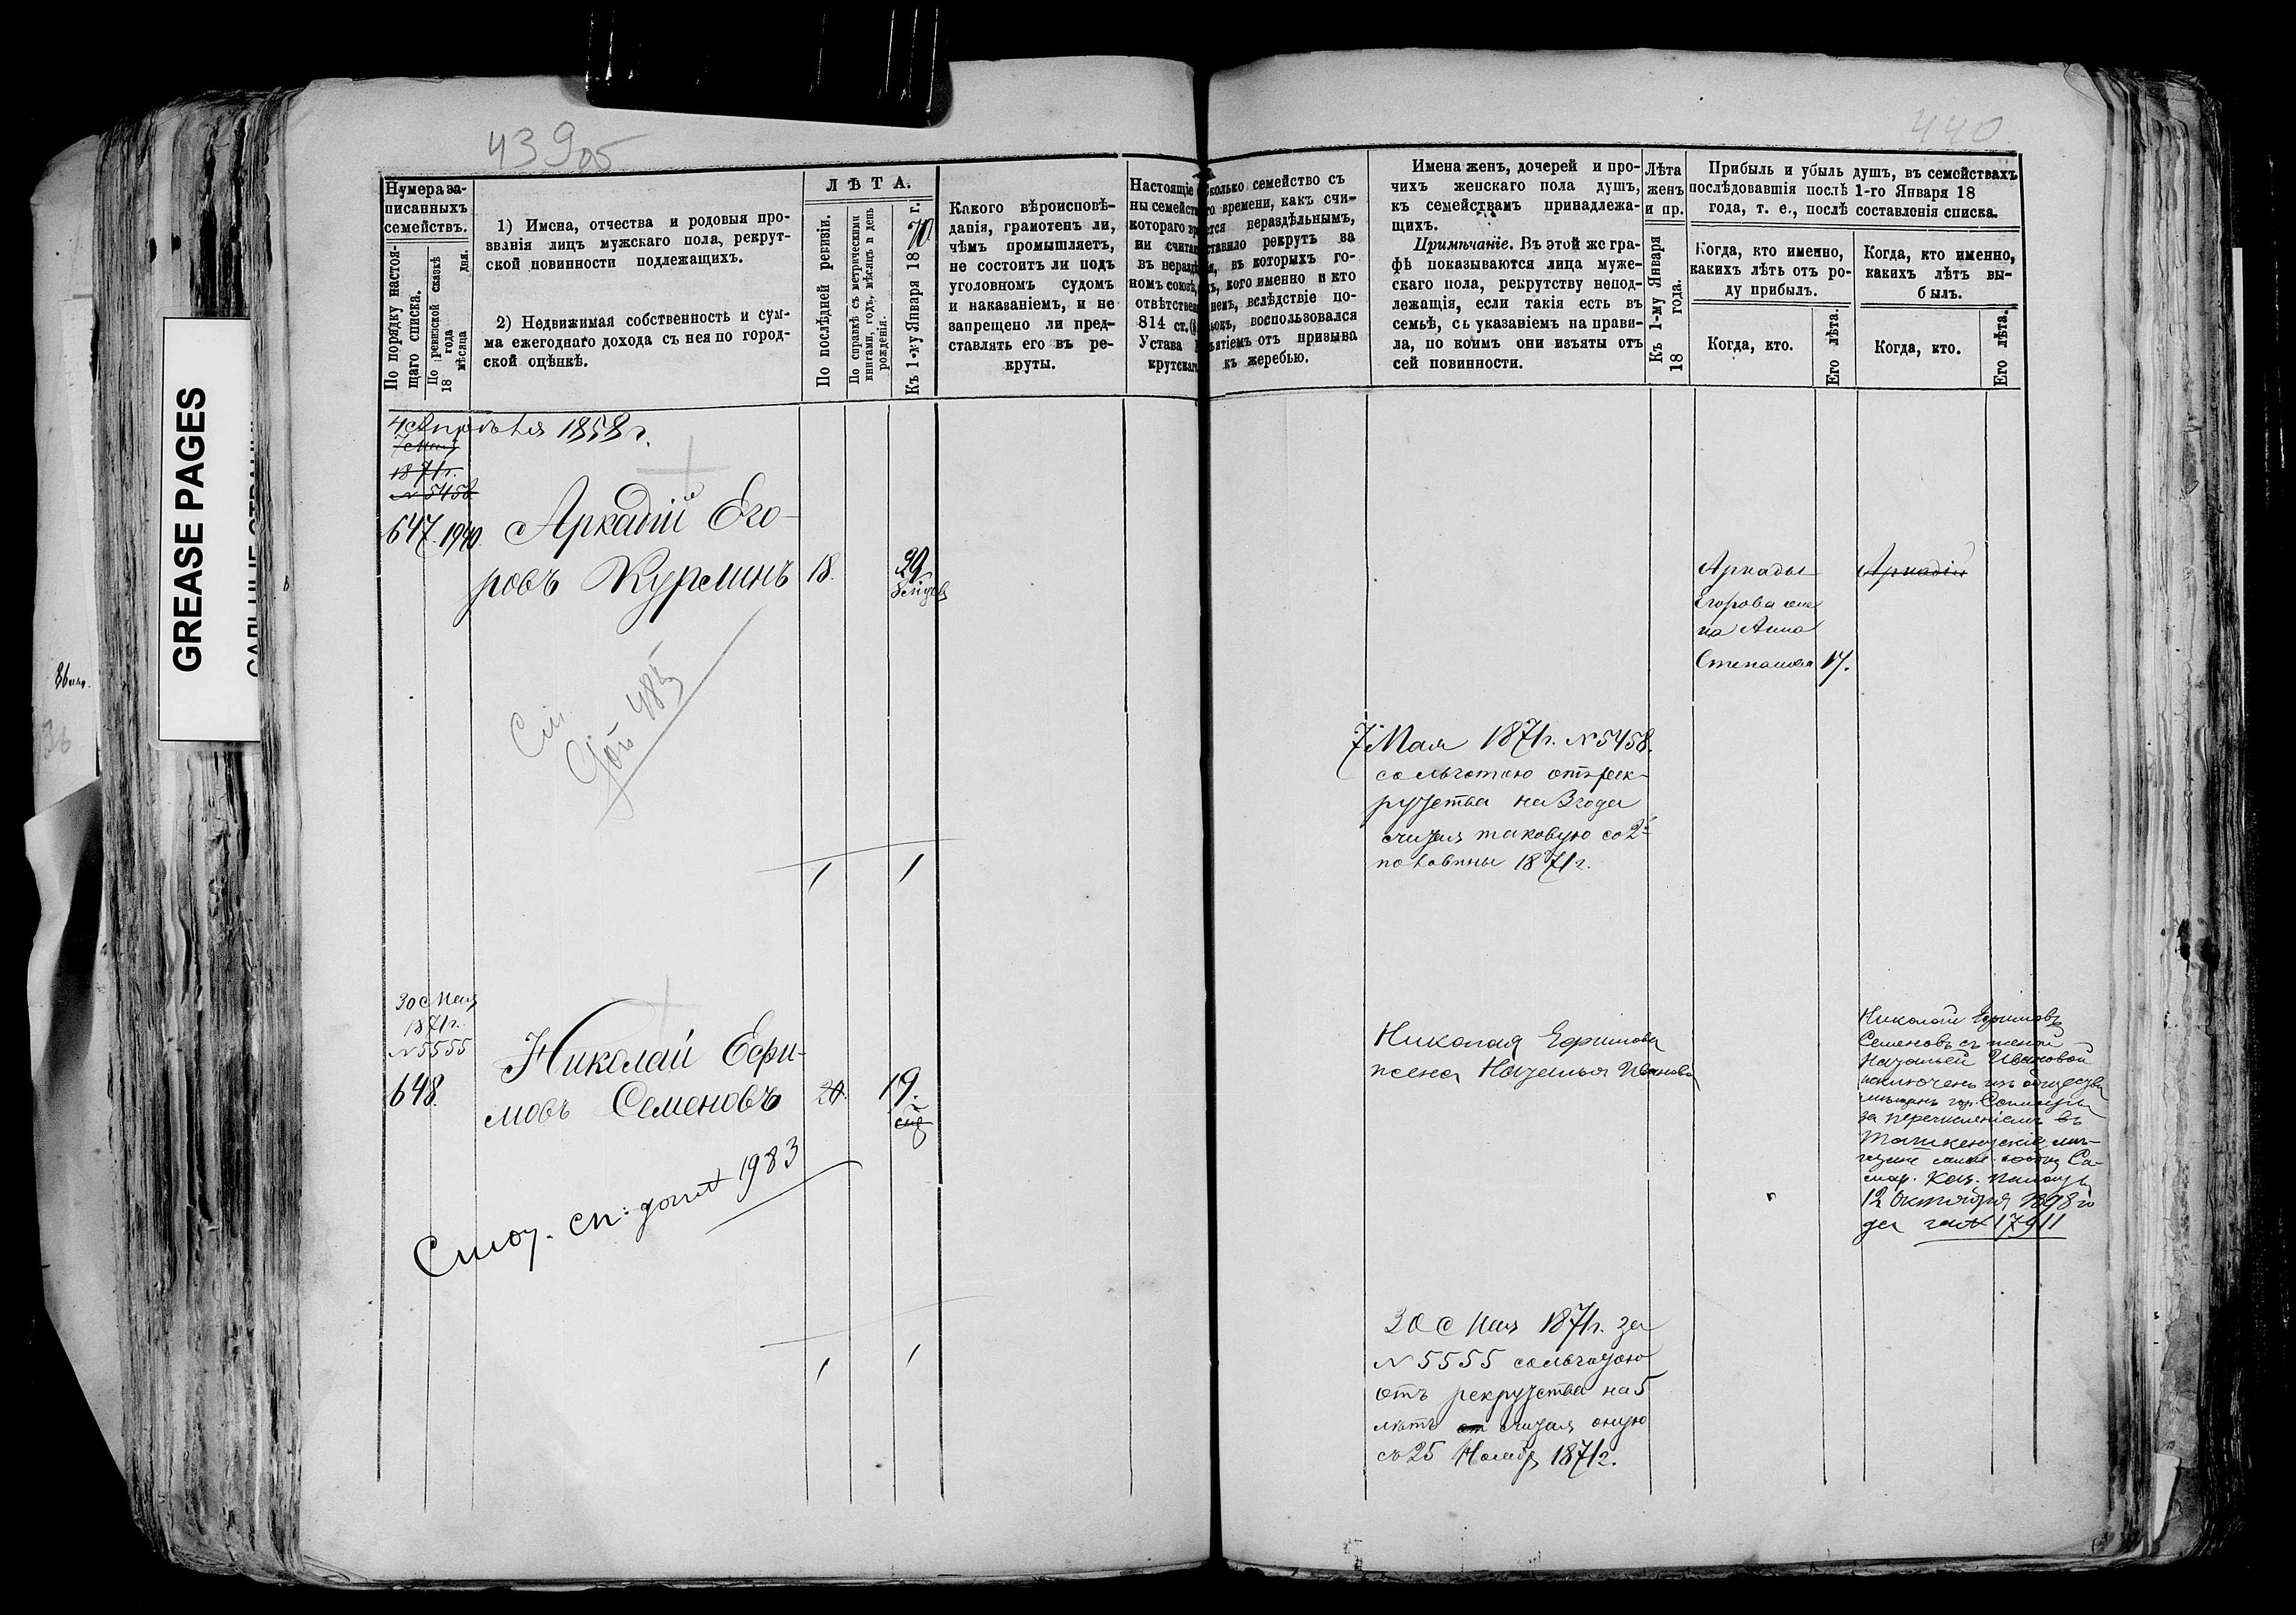 43905
440
GREASE PAGES
Нумера за-
писанныхъ
семействъ.
По порядку настоя-
щаго списка.
По ревизской сказкѣ
18 года
мѣсяца дня.
1) Имена, отчества и родовыя про-
званія лицъ мужскаго пола, рекрут-
ской повинности подлежащихъ.
2) Недвижимая собственность и сум-
ма ежегоднаго дохода съ нея по город-
ской оцѣнкѣ.
ЛѢТА.
По послѣдней ревизіи.
По справкѣ съ метрическими
книгами, годъ, мѣсяцъ и день
рожденія.
Къ 1-му Января 1870 г.
Какого вѣроисповѣ-
данія, грамотенъ ли,
чѣмъ промышляетъ,
не состоитъ ли подъ
уголовномъ судомъ
и наказаніемъ, и не
запрещено ли пред-
ставлять его въ ре-
круты.
Настоящіе
ны семейств
котораго вр
ни считал
въ нераздѣ
номъ союзѣ,
отвѣтствен
814 ст.
Устава
крутскаго
сколько семейство съ
го времени, какъ счи-
ется нераздѣльнымъ,
ставило рекрутъ за
я, въ которыхъ го-
хъ, кого именно и кто
немъ, вслѣдствіе по-
воспользовался
ъятіемъ отъ призыва
къ жеребью.
Имена женъ, дочерей и про-
чихъ женскаго пола душъ,
къ семействамъ принадлежа-
щихъ.
Примѣчаніе. Въ этой же гра-
фѣ показываются лица муже-
скаго пола, рекрутству непод-
лежащія, если такія есть въ
семьѣ, съ указаніемъ на прави-
ла, по коимъ они изъяты отъ
сей повинности.
Лѣта
женъ
и пр.
Къ 1-му Января
18 года.
Прибыль и убыль душъ, въ семействахъ
послѣдовавшія послѣ 1-го Января 18
года, т. е., послѣ составленія списка.
Когда, кто именно,
какихъ лѣтъ отъ ро-
ду прибылъ.
Когда, кто.
Его лѣта.
Когда, кто именно,
какихъ лѣтъ вы-
былъ.
Когда, кто.
Его лѣта.
4 Апрѣля 1858 г.
7 Мая
1871 г.
№ 5458
647. 1940.
Аркадій Его-
ровъ Курлинъ 18. 29
См.
доп 485
1 1
Аркадія
Егорова же
на Анна
Степанова 17.
Аркадій
7 Мая 1871 г. № 5458.
съ льготою отъ рек-
рутства на 3 года
считая таковую со 2й
половины 1871 г.
30 Мая
1871 г.
№ 5555
648.
Николай Ефи-
мовъ Семеновъ 20. 19.
Смот. сп: допол 1983
1 1
Николая Ефимова
жена Наталья Иванова
Николай Ефимовъ
Семеновъ съ женой
Натальей Ивановой
исключенъ изъ общества
мѣщанъ гор. Самары
за перечисленіемъ въ
Ташкентскіе мѣ-
щане
Са-
мар. Каз. Палаты
12 Октября 1898 го
да за № 17911
30 Мая 1871 г. за
№ 5555 съ льготою
отъ рекрутства на 5
лѣтъ от считая оную
съ 25 Ноябр 1871 г.